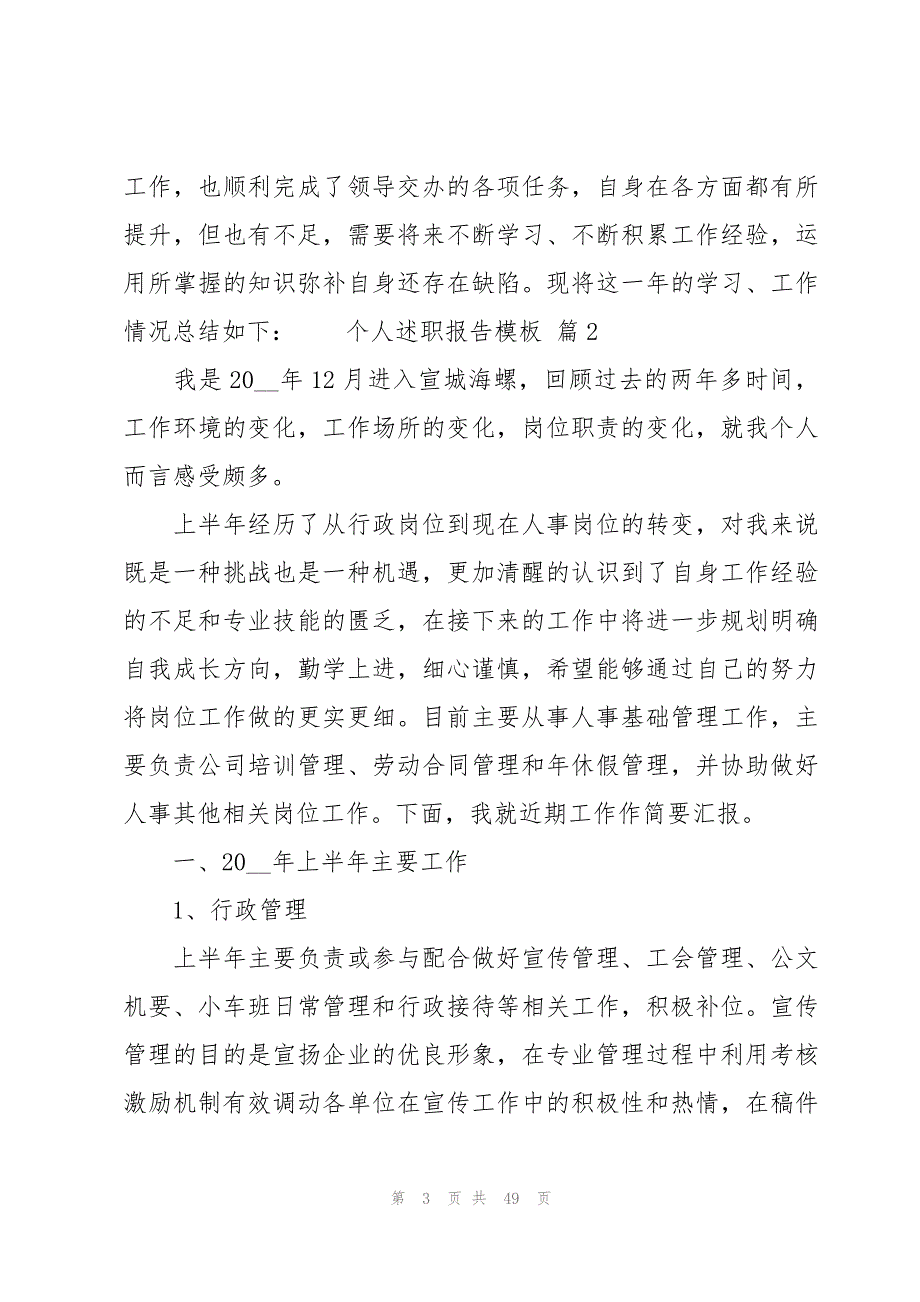 工作，也顺利完成了领导交办的各项任务，自身在各方面都有所
提升，但也有不足，需要将来不断学习、不断积累工作经验，运
用所掌握的知识弥补自身还存在缺陷。现将这一年的学习、工作
情况总结如下：　　个人述职报告模板 篇2
我是20__年12月进入宣城海螺，回顾过去的两年多时间，
工作环境的变化，工作场所的变化，岗位职责的变化，就我个人
而言感受颇多。
上半年经历了从行政岗位到现在人事岗位的转变，对我来说
既是一种挑战也是一种机遇，更加清醒的认识到了自身工作经验
的不足和专业技能的匮乏，在接下来的工作中将进一步规划明确
自我成长方向，勤学上进，细心谨慎，希望能够通过自己的努力
将岗位工作做的更实更细。目前主要从事人事基础管理工作，主
要负责公司培训管理、劳动合同管理和年休假管理，并协助做好
人事其他相关岗位工作。下面，我就近期工作作简要汇报。
一、20__年上半年主要工作
1、行政管理
上半年主要负责或参与配合做好宣传管理、工会管理、公文
机要、小车班日常管理和行政接待等相关工作，积极补位。宣传
管理的目的是宣扬企业的优良形象，在专业管理过程中利用考核
激励机制有效调动各单位在宣传工作中的积极性和热情，在稿件
第 3 页 共 49 页